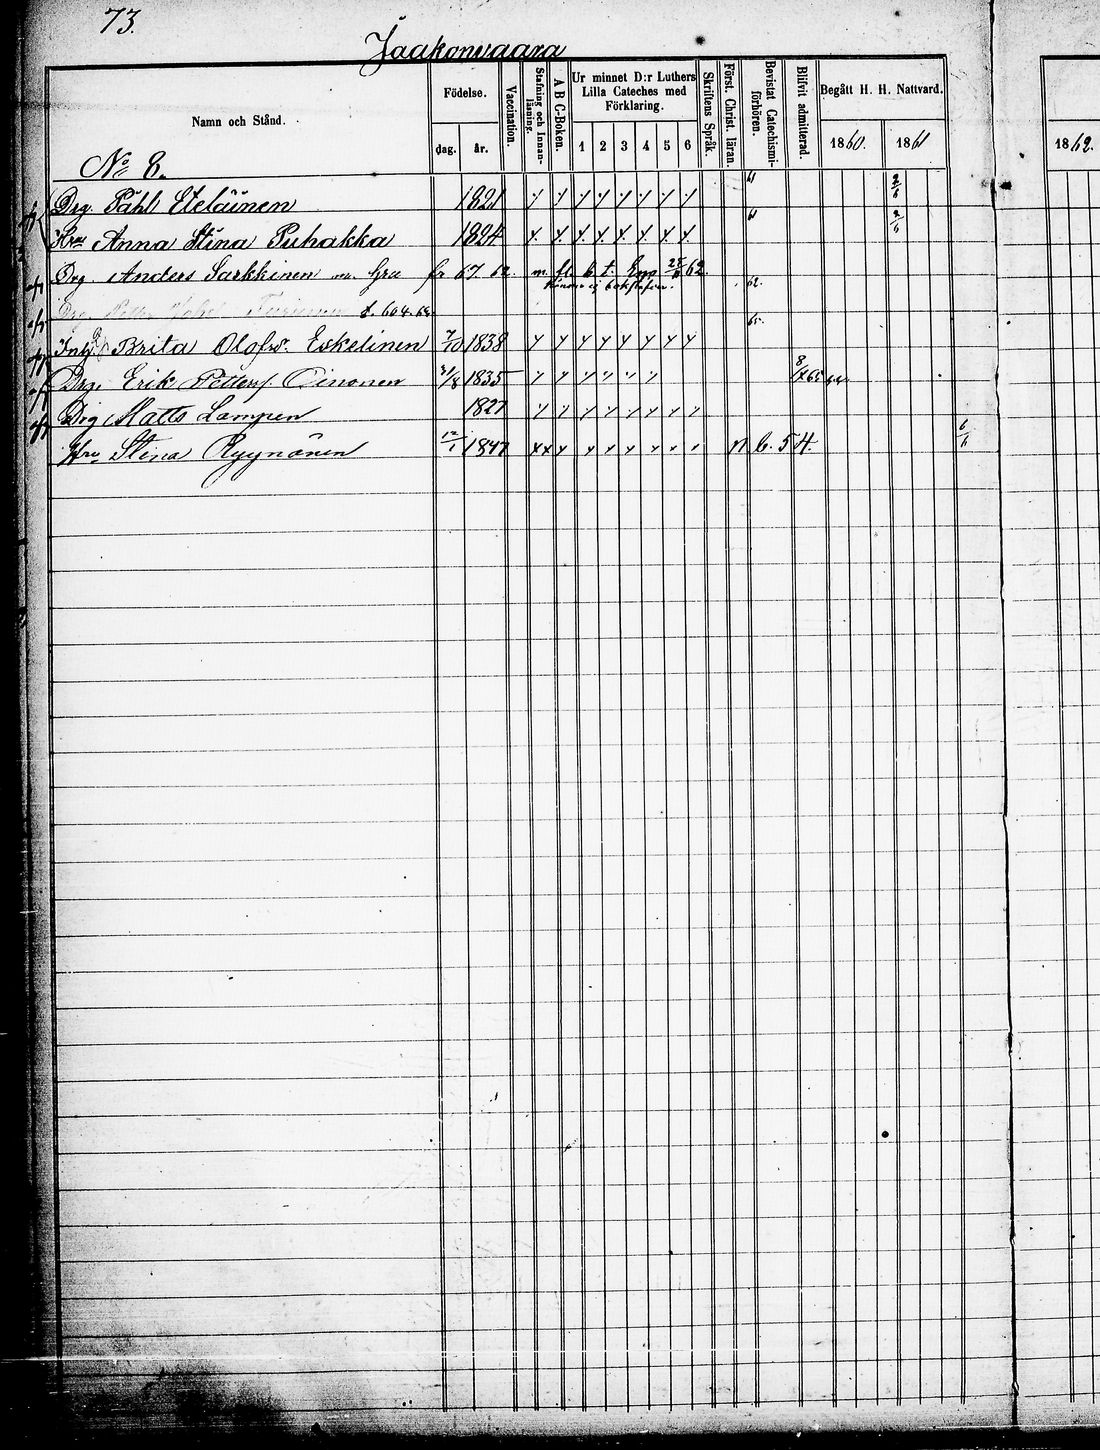 73.
Jaakonvaara
Namn och Stånd.
Födelse.
dag. år.
Vaccination.
Stafning och Innanläsning.
A B C-Boken.
Ur minnet D:r Luthers
Lilla Cateches med
Förklaring.
1 2 3 4 5 6
Skriftens Språk.
Först. Christ. läran.
Bevistat Catechismiförhören.
Blifvit admitterad.
Begått H. H. Nattvard.
1860. 1861
1862.
No 8.
Drg Påhl Eteläinen 1821 61 2/6
Hru Anna Stina Puhakka 1824 61 2/6
Drg. Anders Sarkkinen fr 67. 62 62. 62.
f. 604. 65.
Brita Olofsd. Eskelinen 7/10 1838
Drg. Erik Petterss. Oinonen 31/8 1835 8/7 65
Drg Matts Lampen 1827
Hru Stina Ryynönen 12/1 1847 n b. 54. 6/6